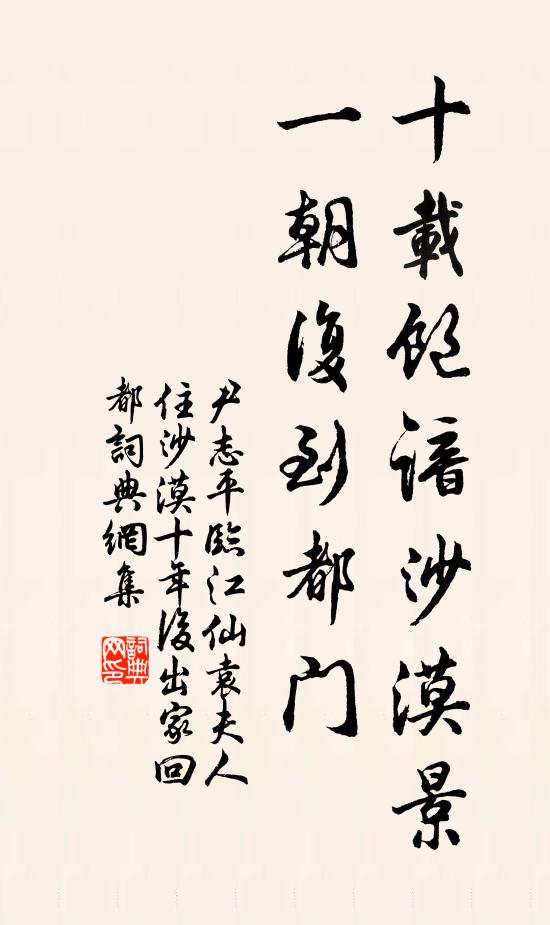 十載飽諳沙漠景
一朝復到都門
尹志平臨江仙袁夫人
住沙漠十年後出家回
都詞典網集
詞典網印